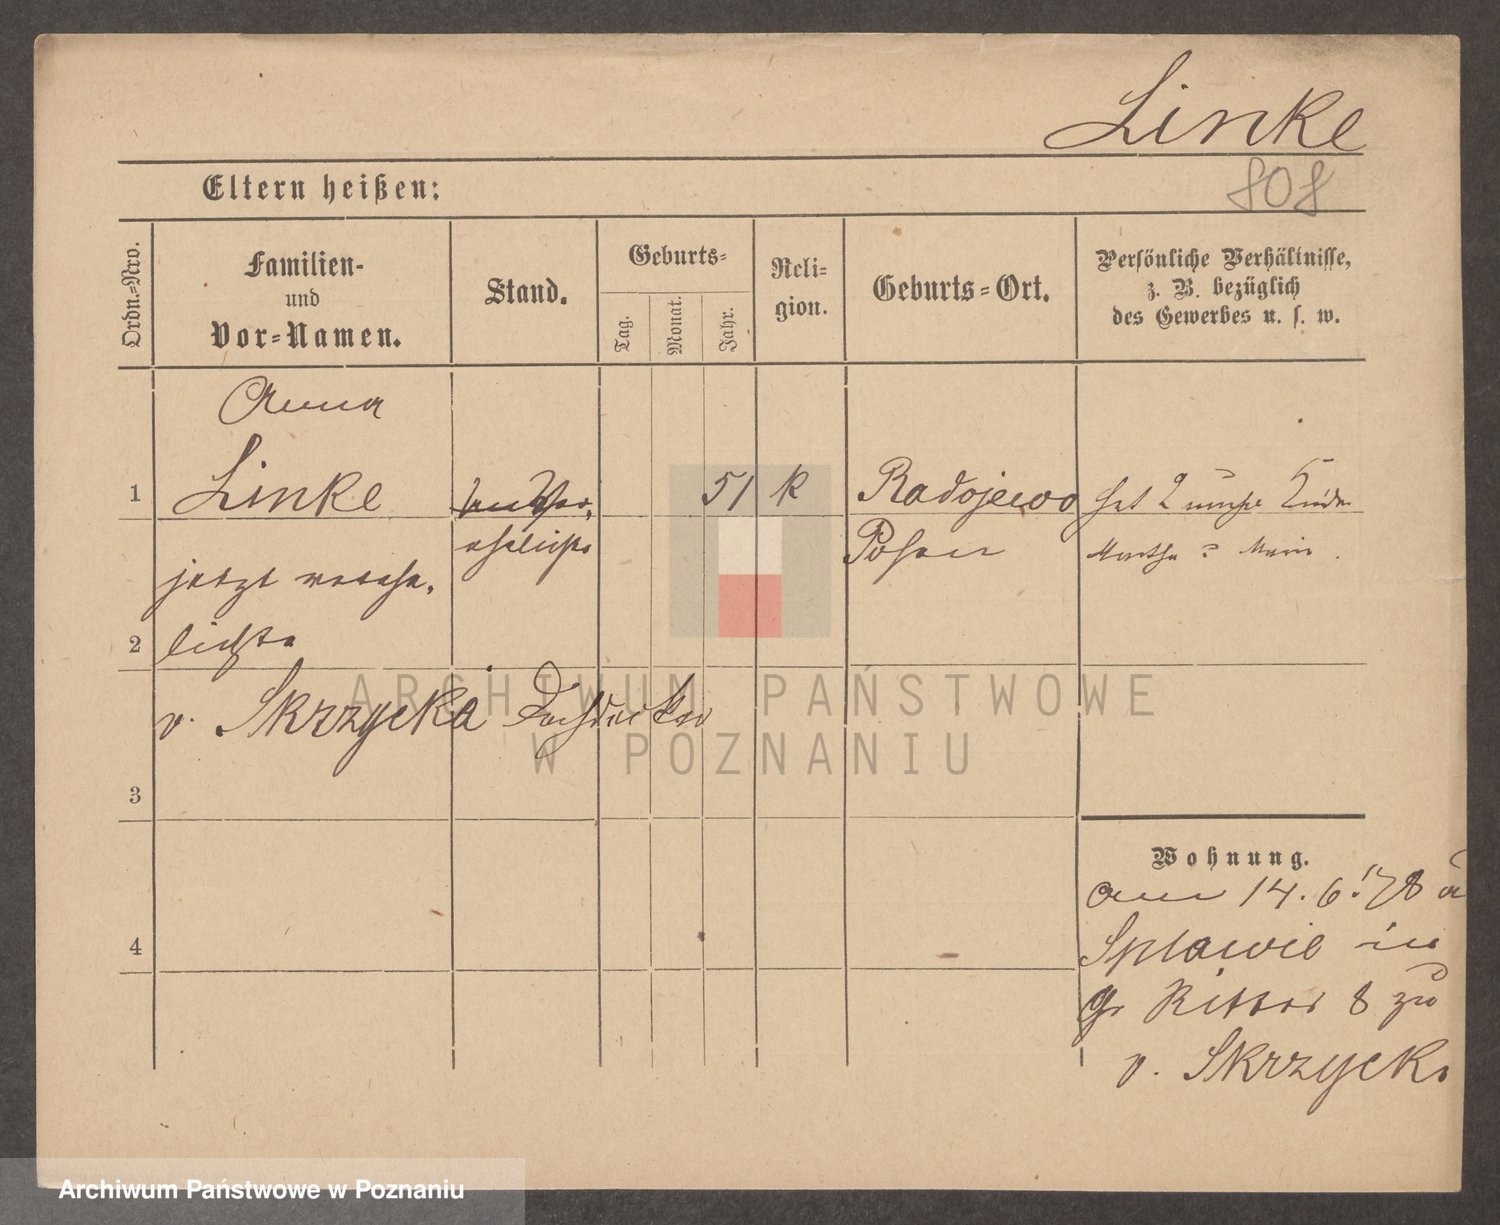 Linke
808
Eltern heißen:
Ordn.-Nro.
Familien-
und
Vor-Namen.
Stand.
Geburts-
Tag.
Monat.
Jahr.
Reli-
gion.
Geburts-Ort.
Persönliche Verhältnisse,
z. B. bezüglich
des Gewerbes u. s. w.
Anna
1 Linke 51 k Radojewo hat 2 Kinder
ehelichte Posen Martha Marie
jetzt verehe-
2 lichte
v. Skrzycka Dachdecker
ARCHIWUM PAŃSTWOWE
W POZNANIU
3
Wohnung.
am 14. 6. 78 a
4 Splawie in
Gr Ritter 8 zu
v. Skrzycki
Archiwum Państwowe w Poznaniu